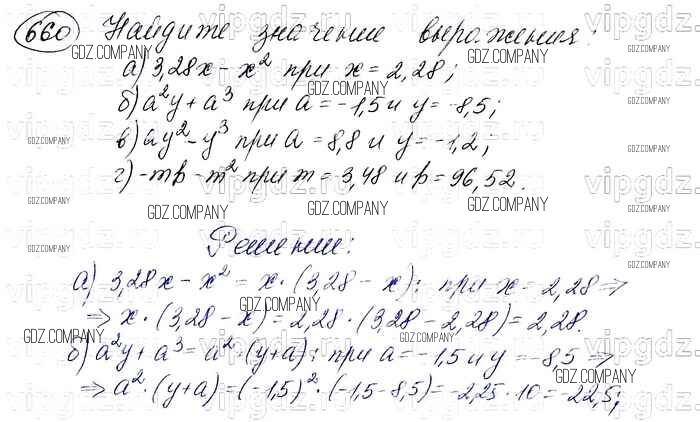 660 Найдите значение выражения:
а) 3,28x - x² при x = 2,28;
б) a²y + a³ при a = -1,5 и y = -8,5;
в) ay² - y³ при a = 8,8 и y = -1,2;
г) -mp - m² при m = -3,48 и p = 96,52.
Решение:
а) 3,28x - x² = x · (3,28 - x); при x = 2,28 ⇒
⇒ x · (3,28 - x) = 2,28 · (3,28 - 2,28) = 2,28.
б) a²y + a³ = a² · (y + a); при a = -1,5 и y = -8,5 ⇒
⇒ a² · (y + a) = (-1,5)² · (-1,5 - 8,5) = -2,25 · 10 = -22,5;